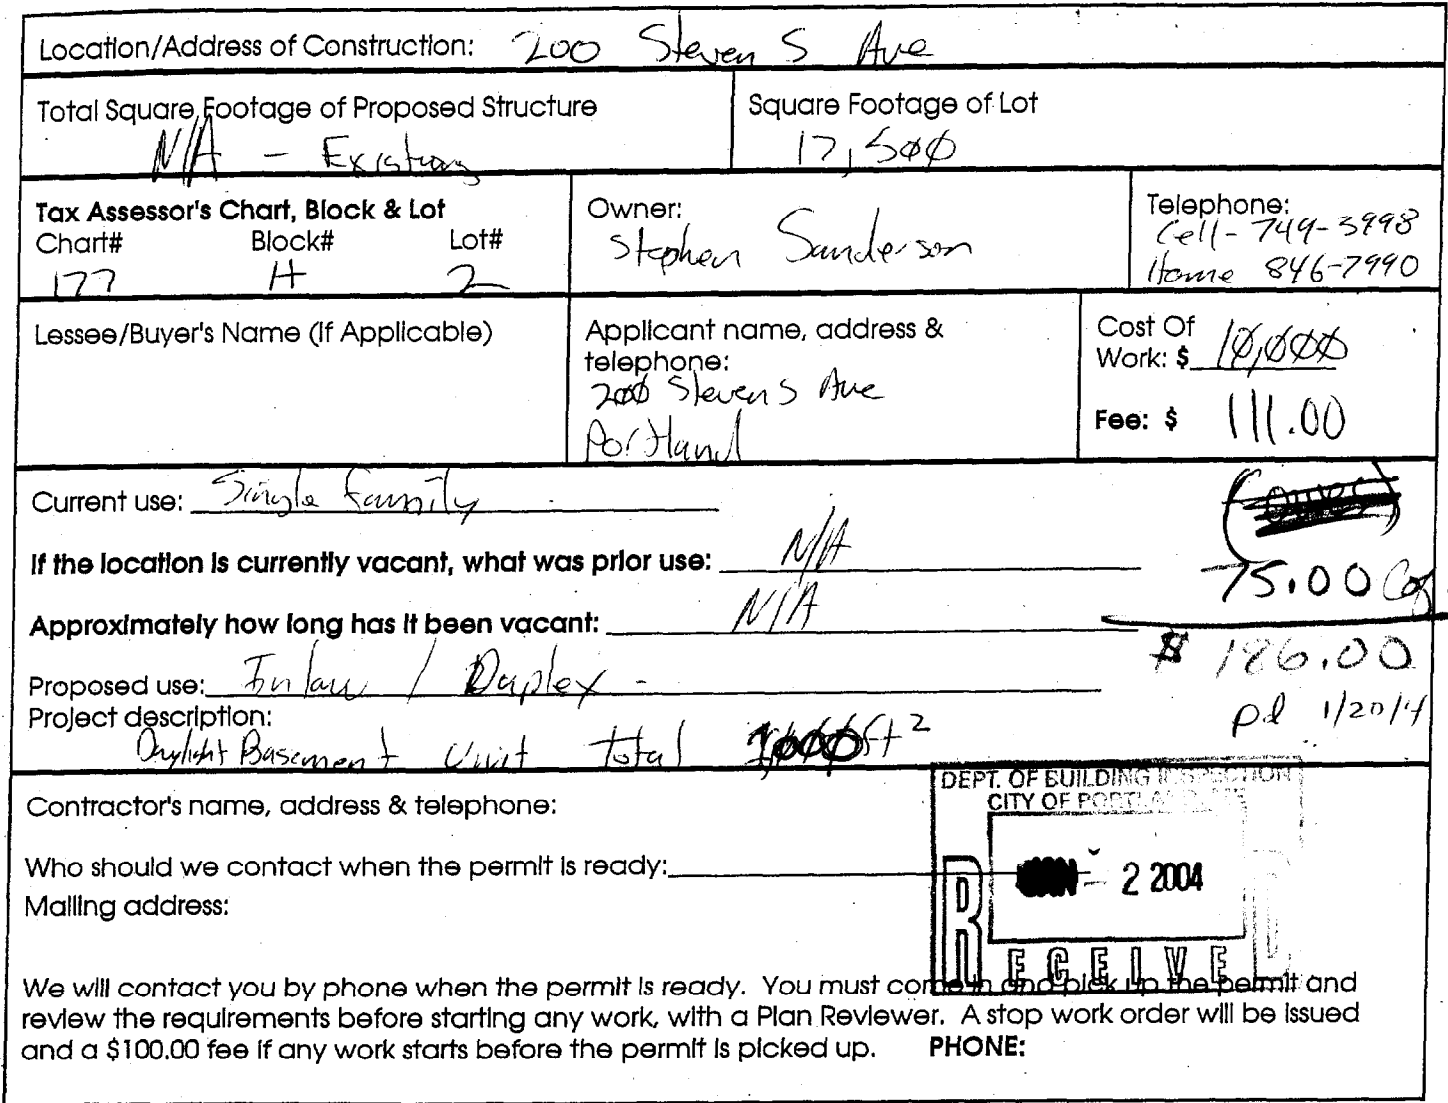 Location/Address of Construction: 200 Stevens Ave
Total Square Footage of Proposed Structure
N/A - Existing
Square Footage of Lot
17,500
Tax Assessor's Chart, Block & Lot
Chart# Block# Lot#
177 H 2
Owner:
Stephen Sanderson
Telephone:
Cell - 749-3998
Home 846-7990
Lessee/Buyer's Name (If Applicable)
Applicant name, address &
telephone:
200 Stevens Ave
Portland
Cost Of
Work: $ 10,000
Fee: $ 111.00
Current use: Single Family
75.00 Cof
If the location is currently vacant, what was prior use: N/A
Approximately how long has it been vacant: N/A
$ 186.00
Proposed use: Inlaw / Duplex -
pd 1/20/4
Project description:
Daylight Basement Unit total 1,000 ft²
Contractor's name, address & telephone:
DEPT. OF BUILDING INSPECTION
CITY OF PORTLAND
Who should we contact when the permit is ready:
- 2 2004
Mailing address:
RECEIVED
We will contact you by phone when the permit is ready. You must come in and pick up the permit and
review the requirements before starting any work, with a Plan Reviewer. A stop work order will be issued
and a $100.00 fee if any work starts before the permit is picked up. PHONE: